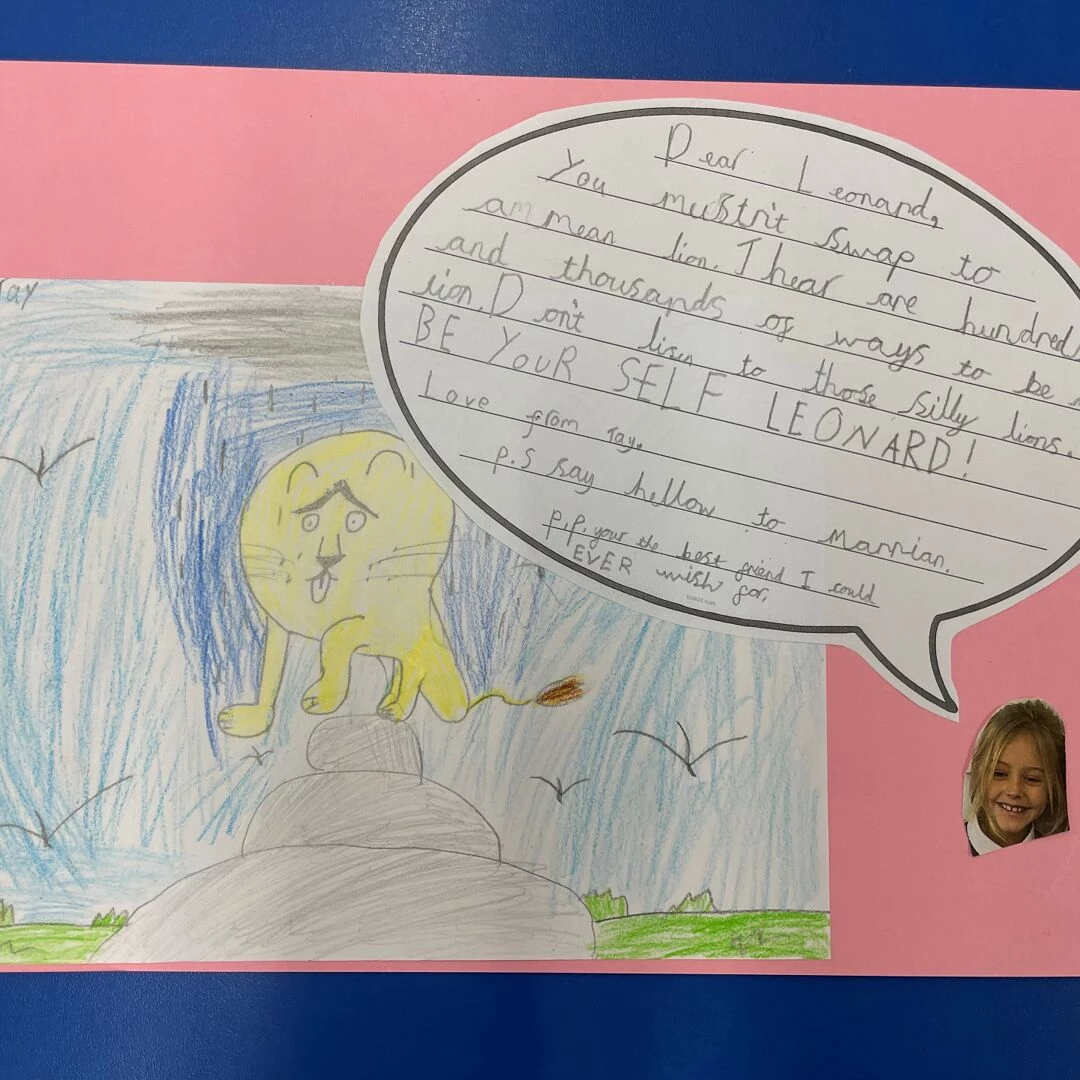 Tay
Dear Leonard,
You mustn't swap to
am mean lion. Thear are hundred
and thousands of ways to be
lion. Don't lisen to those silly lions.
BE YOUR SELF LEONARD!
Love from Tay.
P.S say hellow to Marrian.
P.P. your the best friend I could
EVER wish for.